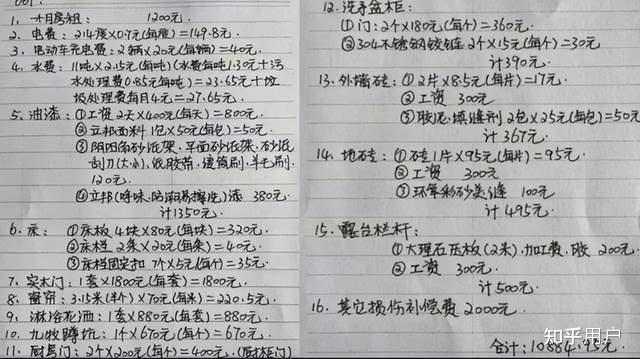 1. 一月房租： 1200元.
2. 电费：214度×0.7元(每度)=149.8元.
3. 电动车充电费：2辆×20元(每辆)=40元.
4. 水费：11吨×2.15元(每吨)(水费每吨1.30元+污
水处理费0.85元每吨)=23.65元+垃
圾处理费每月4元=27.65元.
5. 油漆：①工资2天×400元(每天)=800元.
②立邦面料 1包×50元(每包)=50元.
③阴阳角砂纸架、平面砂纸架、砂纸
刮刀(大小)、纸胶带、滚筒刷、羊毛刷.
120元.
④立邦(净味、防潮易擦洗)漆 380元.
计1350元.
6. 床：①床板 4块×80元(每块)=320元.
②床档 2条×20元(每条)=40元.
③床档固定扣 7个×5元(每个)=35元.
7. 实木门：1套×1800元(每套)=1800元.
8. 窗帘：3.15米×70元(每米)=220.5元.
9. 淋浴花洒：1套×880元(每套)=880元.
10. 九牧蹲坑：1个×670元(每个)=670元.
11. 厨房门：2个×200元(每个)=400元.
12. 洗手盆柜：
①门：2个×180元(每个)=360元.
②304不锈钢铰链 2个×15元(每个)=30元
计390元.
13. 外墙砖：①2片×8.5元(每片)=17元.
②工资 300元
③胶泥、填缝剂 2包×25元(每包)=50元
计367元.
14. 地砖：①砖1片×95元(每片)=95元.
②工资 300元
③环氧彩砂美缝 100元
计495元.
15. 露台栏杆：
①大理石压板(2米)、加工费、胶 200元.
②工资 300元.
计500元.
16. 其它损伤补偿费 2000元.
合计：10884.95元.
知乎用户